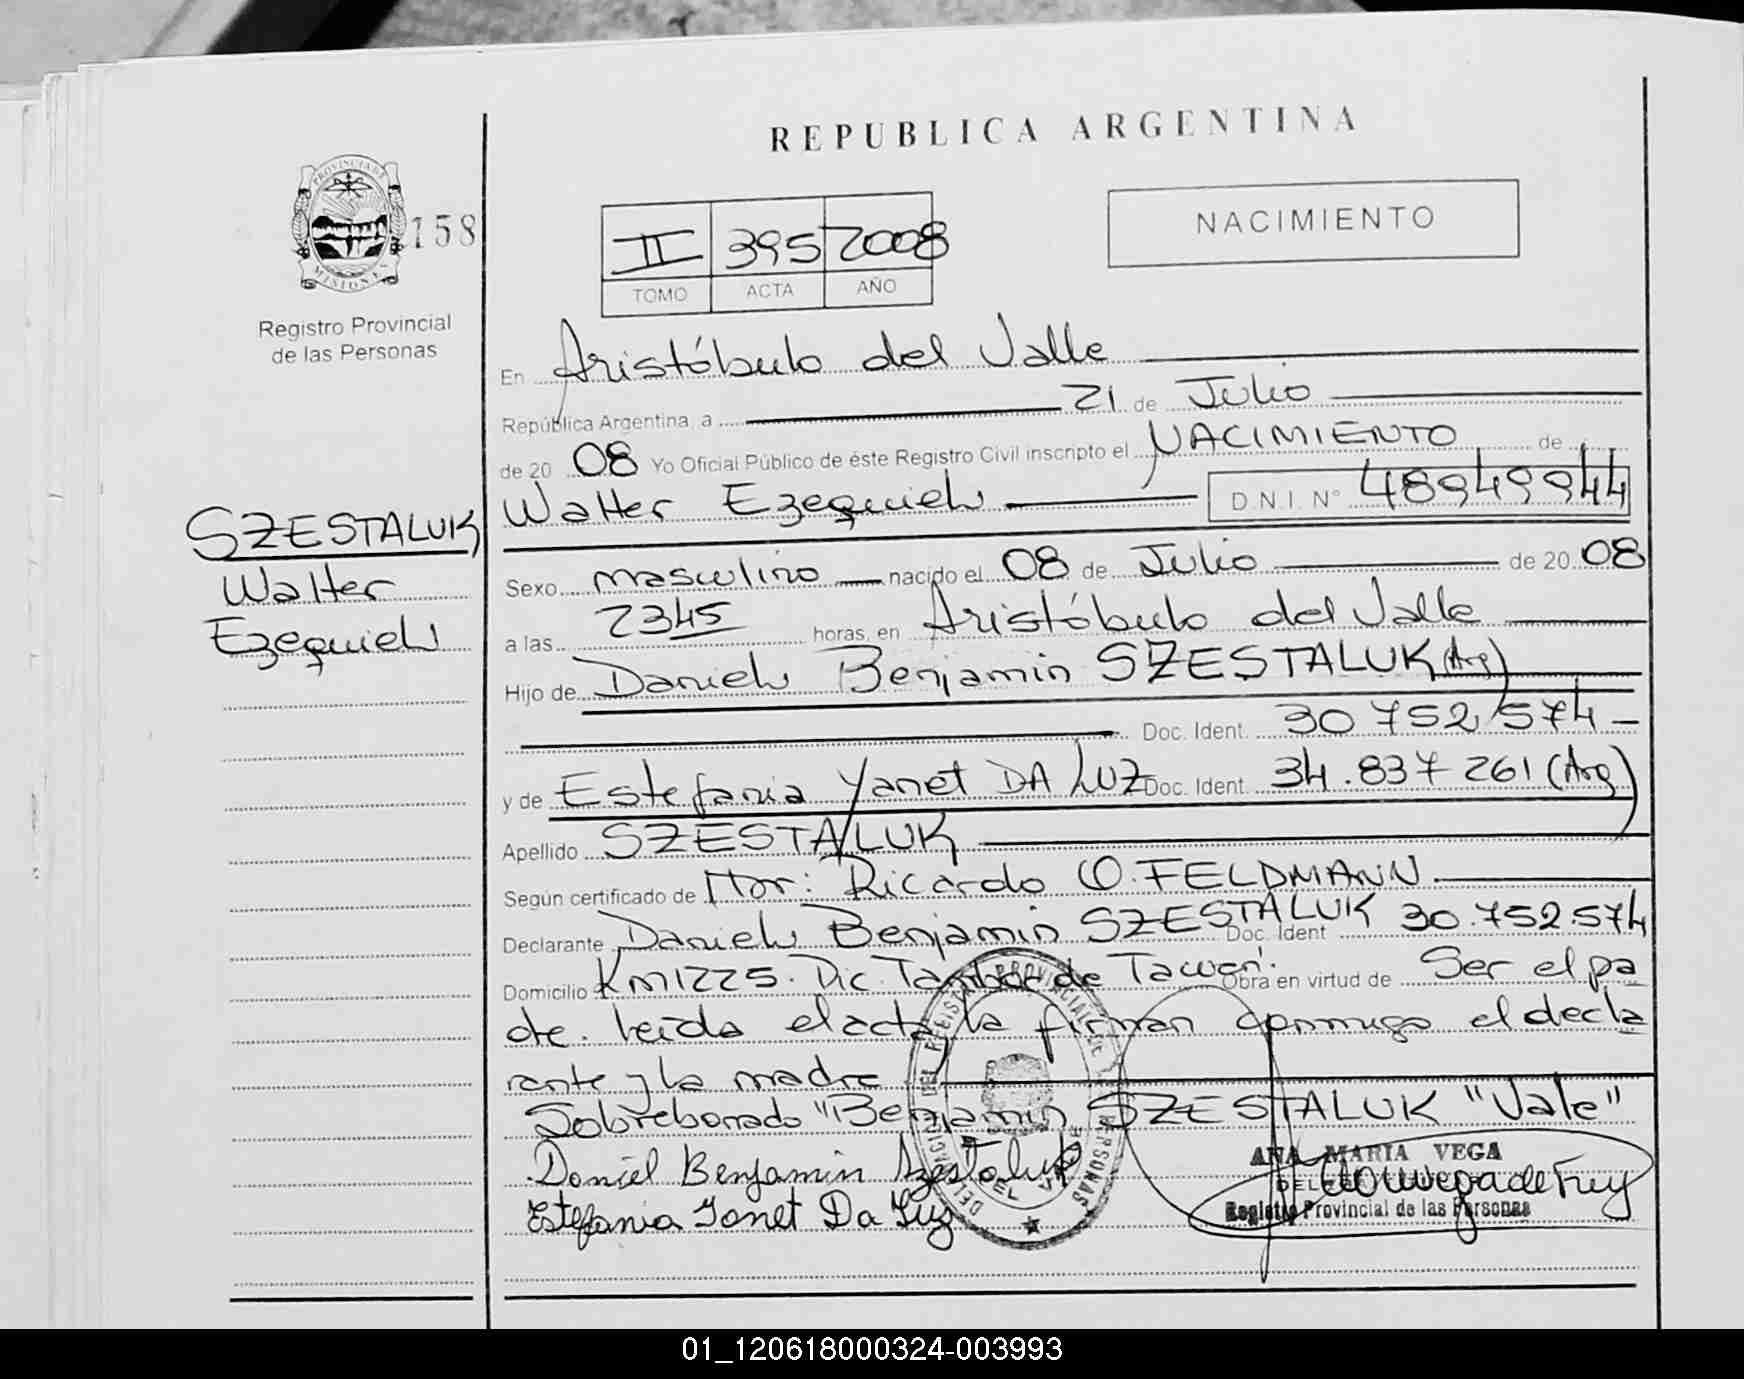 REPUBLICA ARGENTINA
PROVINCIA DE
MISIONES
158
Registro Provincial
de las Personas
II 395 2008
TOMO ACTA AÑO
NACIMIENTO
En Aristóbulo del Valle
República Argentina, a 21 de Julio
de 20 08 Yo Oficial Público de éste Registro Civil inscripto el NACIMIENTO de
Walter Ezequiel D.N.I. N° 48949944
SZESTALUK
Walter
Ezequiel
Sexo masculino nacido el 08 de Julio de 20 08
a las 2345 horas, en Aristóbulo del Valle
Hijo de Daniel Benjamin SZESTALUK (Arg)
Doc. Ident. 30 752 574
y de Estefania Yanet DA LUZ Doc. Ident. 34.837 261 (Arg)
Apellido SZESTALUK
Según certificado de Ricardo O. FELDMANN
Declarante Daniel Benjamin SZESTALUK Doc. Ident 30.752.574
Domicilio Km 1225. Pic. Tambor de Tacuarí Obra en virtud de Ser el pa
dre. leída el acta la firman conmigo el decla
rante y la madre
Sobreborrado "Benjamin SZESTALUK "Vale"
Daniel Benjamin Szestaluk
Estefania Yanet Da Luz
ANA MARIA VEGA
Registro Provincial de las Personas
01_120618000324-003993